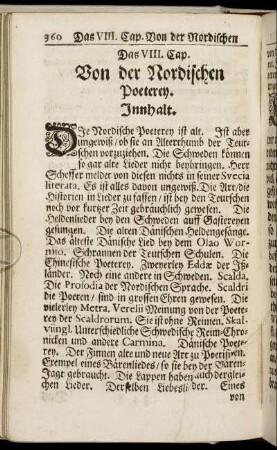 360 Das VIII. Cap. Von der Nordischen
Das VIII. Cap.
Von der Nordischen
Poeterey.
Innhalt.
DJe Nordische Poeterey ist alt. Jst aber
ungewiß / ob sie an Alterthumb der Teut-
schen vorzuziehen. Die Schweden können
so gar alte Lieder nicht beybringen. Herr
Scheffer meldet von diesen nichts in seiner Svecia
literata. Es ist alles davon ungewiß. Die Art / die
Historien in Lieder zu fassen / ist bey den Teutschen
noch vor kurtzer Zeit gebräuchlich gewesen. Die
Heldenlieder bey den Schweden auff Gastereyen
gesungen. Die alten Dänischen Heldengesänge.
Das älteste Dänische Lied bey dem Olao Wor-
mio. Schrannen der Teutschen Schulen. Die
Chinesische Poeterey. Zweyerley Eddæ der Jß-
länder. Noch eine andere in Schweden. Scalda.
Die Prosodia der Nordischen Sprache. Scaldri
die Poeten / sind in grossen Ehren gewesen. Die
vielerley Metra, Verelii Meinung von der Poete-
rey der Scaldrorum. Sie ist ohne Reimen. Skal-
viingl. Unterschiedliche Schwedische Reim-Chro-
nicken und andere Carmina. Dänische Poete-
rey. Der Finnen alte und neue Art zu Poetisiren.
Exempel eines Bärenliedes / so sie bey der Bären-
Jagt gebraucht. Die Lappen haben auch derglei-
chen Lieder. Derselben Liebeslieder. Eines
von